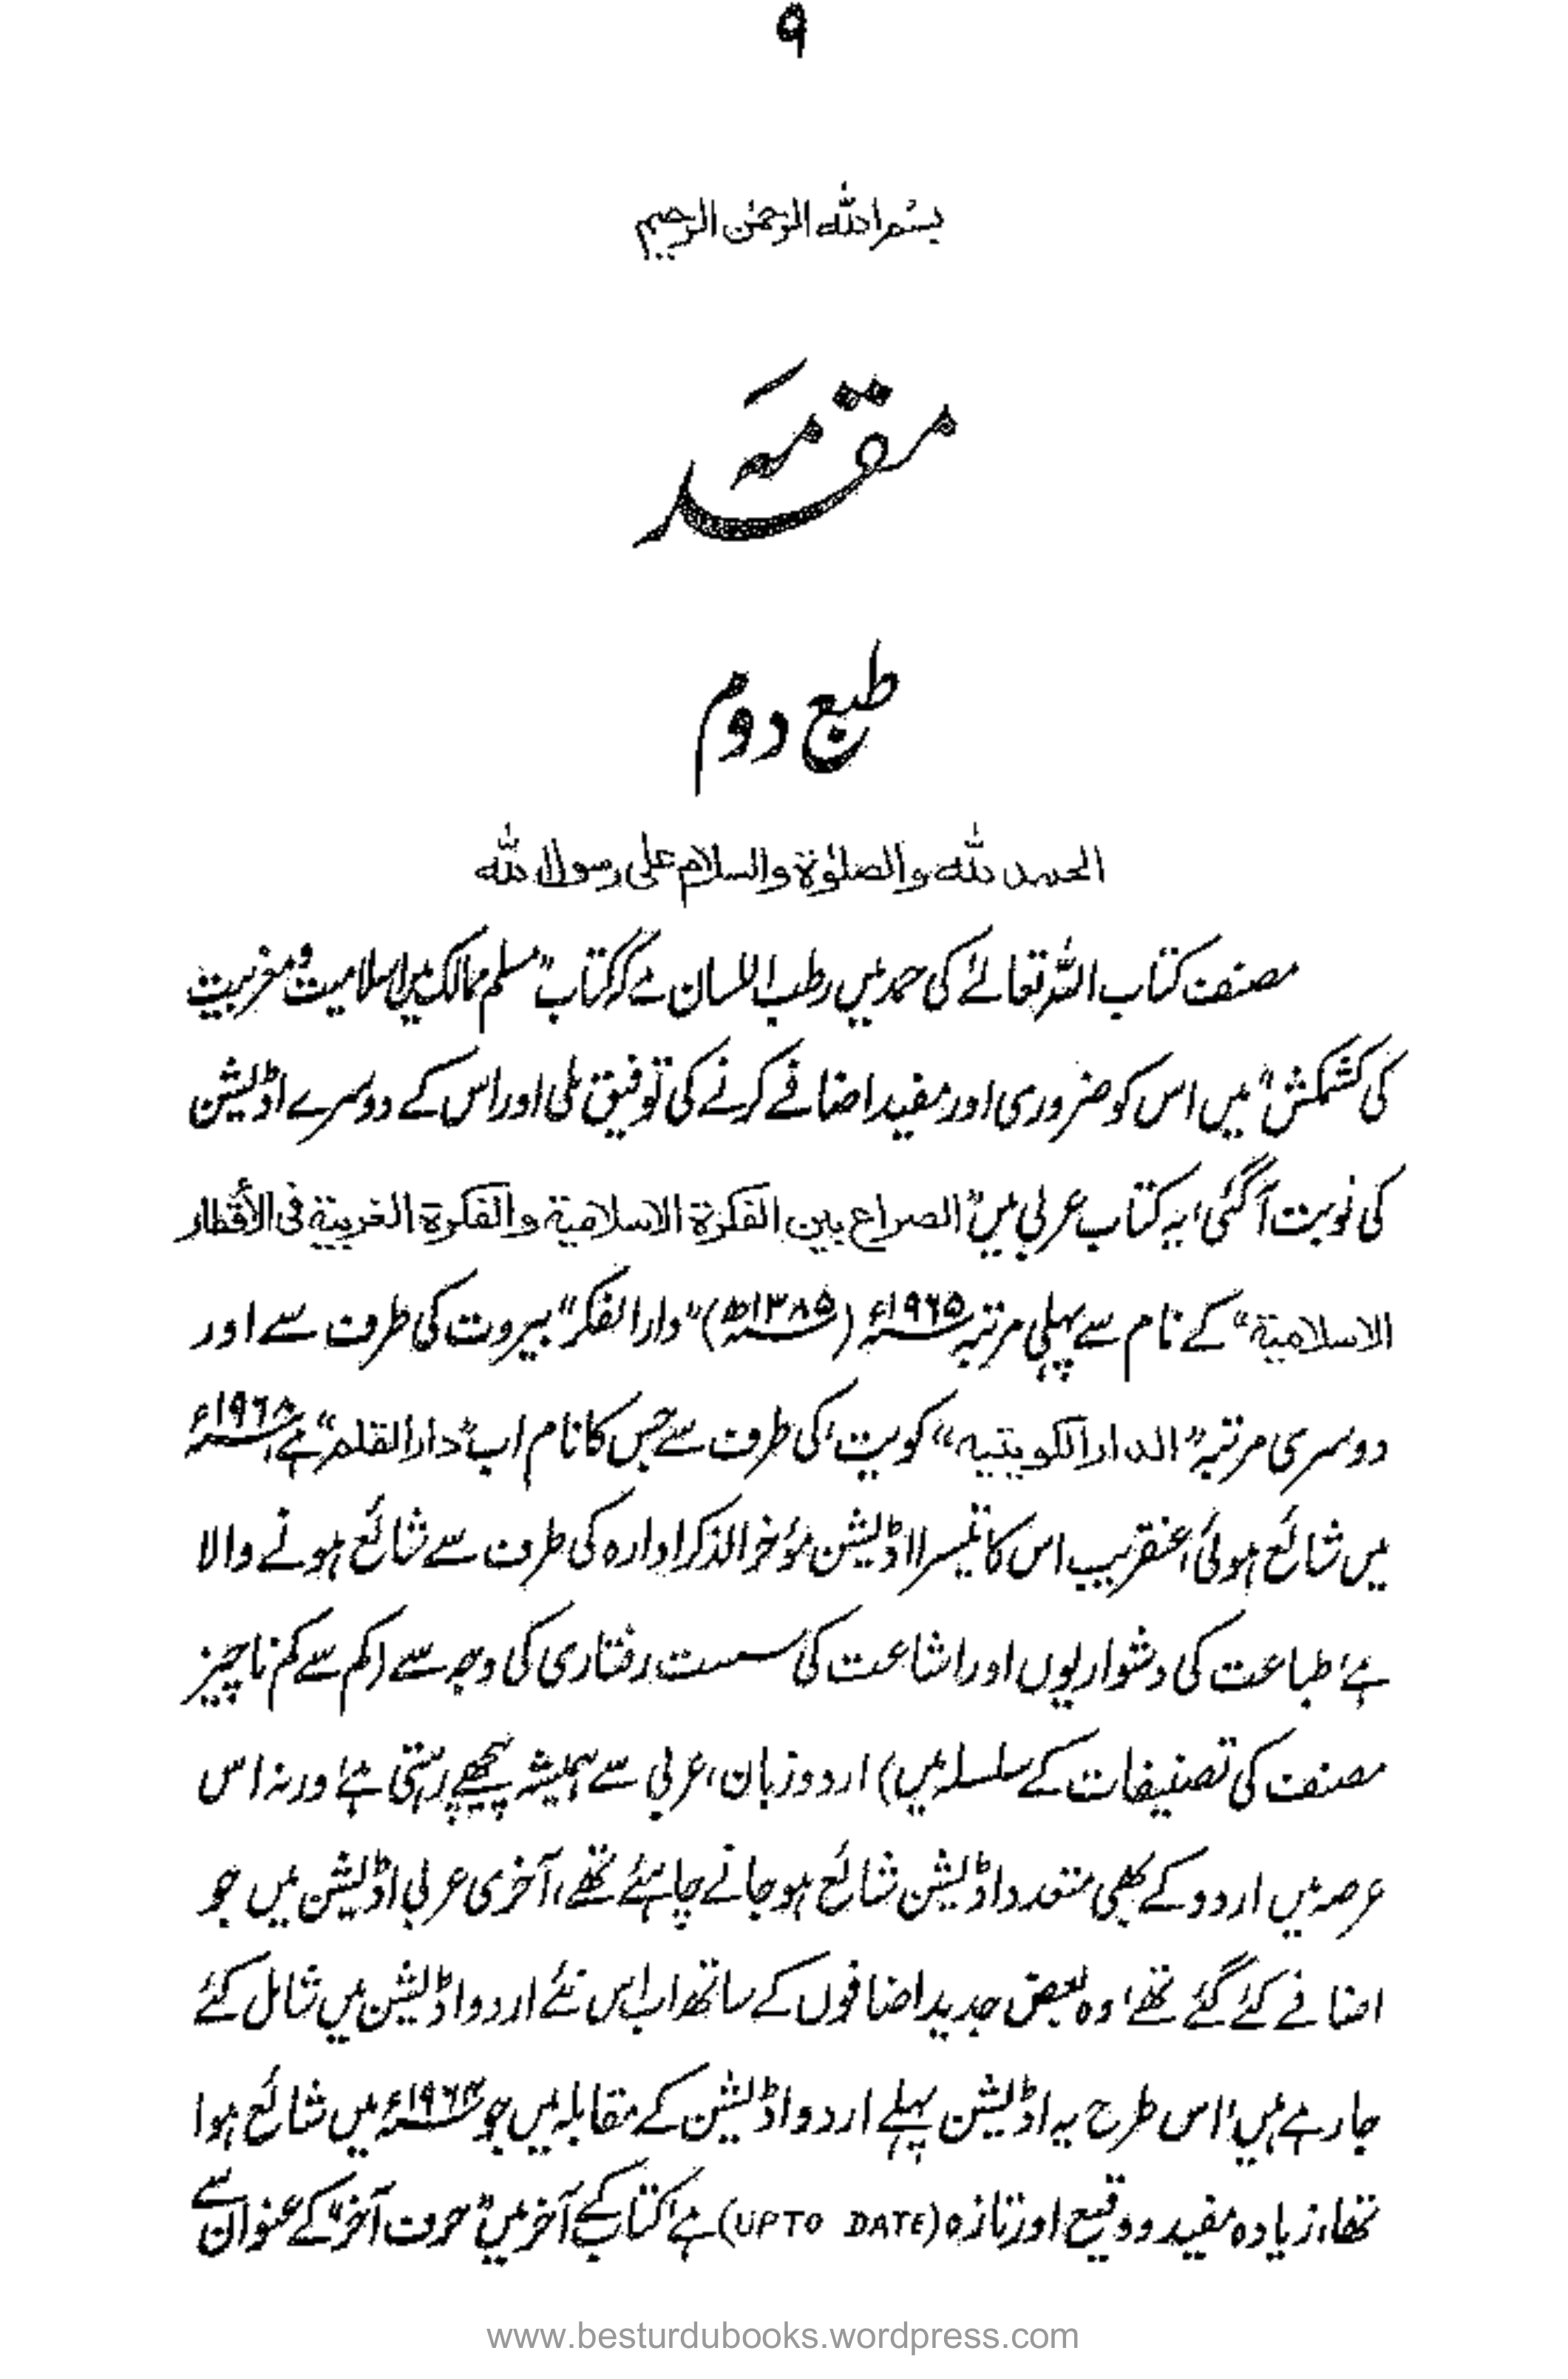 ۹
بسم الله الرحمن الرحيم
مقدمہ
طبع دوم
الحمد لله والصلوٰة والسلام على رسول الله
مصنف کتاب اللہ تعالےٰ کی حمد میں رطب اللسان ہے کہ کتاب "مسلم ممالک میں اسلامیت و مغربیت
کی کشمکش" میں اس کو ضروری اور مفید اضافے کرنے کی توفیق ملی اور اس کے دوسرے اڈیشن
کی نوبت آگئی، یہ کتاب عربی میں "الصراع بين الفكرة الاسلامية والفكرة الغربية فى الأقطار
الاسلامية" کے نام سے پہلی مرتبہ ۱۹۶۵ء (۱۳۸۵ھ) "دار الفکر" بیروت کی طرف سے اور
دوسری مرتبہ "الدار الکویتیہ" کویت، کی طرف سے جس کا نام اب "دار القلم" ہے، ۱۹۶۸ء
میں شائع ہوئی، عنقریب اس کا تیسرا اڈیشن مؤخر الذکر ادارہ کی طرف سے شائع ہونے والا
ہے، طباعت کی دشواریوں اور اشاعت کی سست رفتاری کی وجہ سے (کم سے کم ناچیز
مصنف کی تصنیفات کے سلسلہ میں) اردو زبان، عربی سے ہمیشہ پیچھے رہتی ہے، ورنہ اس
عرصہ میں اردو کے بھی متعدد اڈیشن شائع ہو جانے چاہئے تھے، آخری عربی اڈیشن میں جو
اضافے کئے گئے تھے، وہ بعض جدید اضافوں کے ساتھ اب اس نئے اردو اڈیشن میں شامل کئے
جارہے ہیں، اس طرح یہ اڈیشن پہلے اردو اڈیشن کے مقابلہ میں جو ۱۹۶۳ء میں شائع ہوا
تھا، زیادہ مفید و وقیع اور تازہ (UPTO DATE) ہے، کتاب کے آخر میں "حرف آخر" کے عنوان سے
www.besturdubooks.wordpress.com